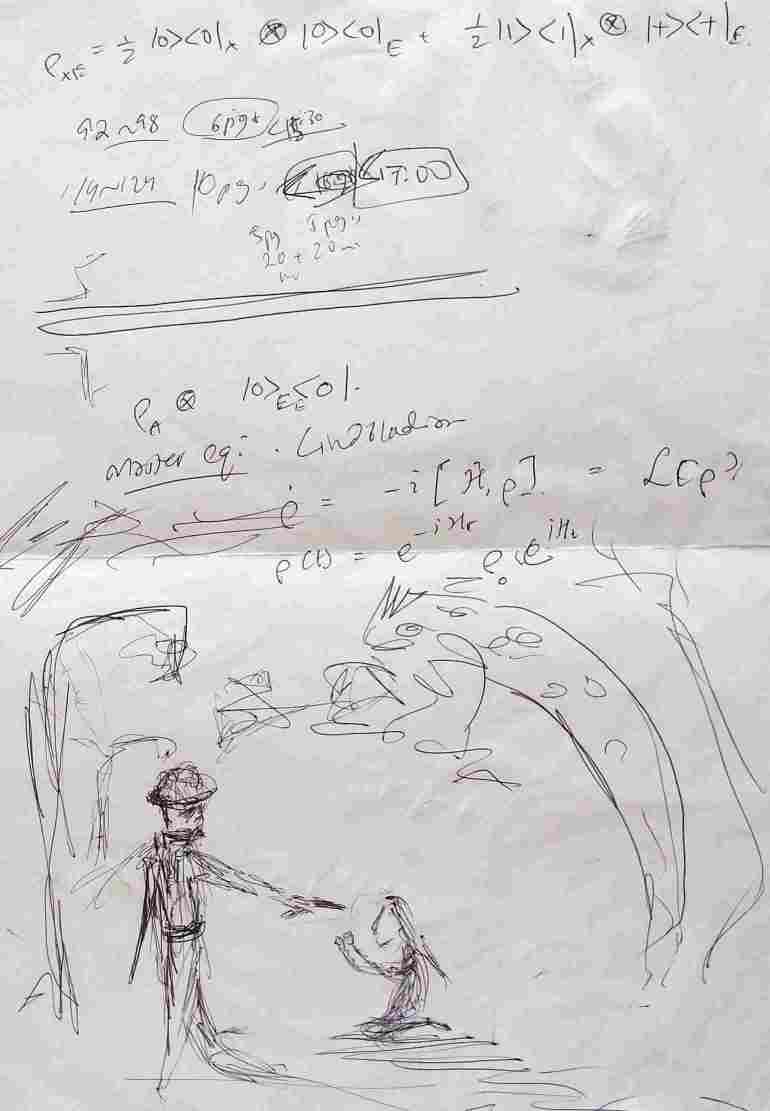 ρ_XE = 1/2 |0><0|_X ⊗ |0><0|_E + 1/2 |1><1|_X ⊗ |+><+|_E.
92~98 6pgs
119~129 10pg. <17:00
5pg 5pgs
20 + 20 m
ρ_A ⊗ |0>_E _E<0|.
Master eq: . Lindbladian
ρ̇ = -i [H, ρ]. = L[ρ]
ρ(t) = e^{-iHt} ρ_0 e^{iHt}